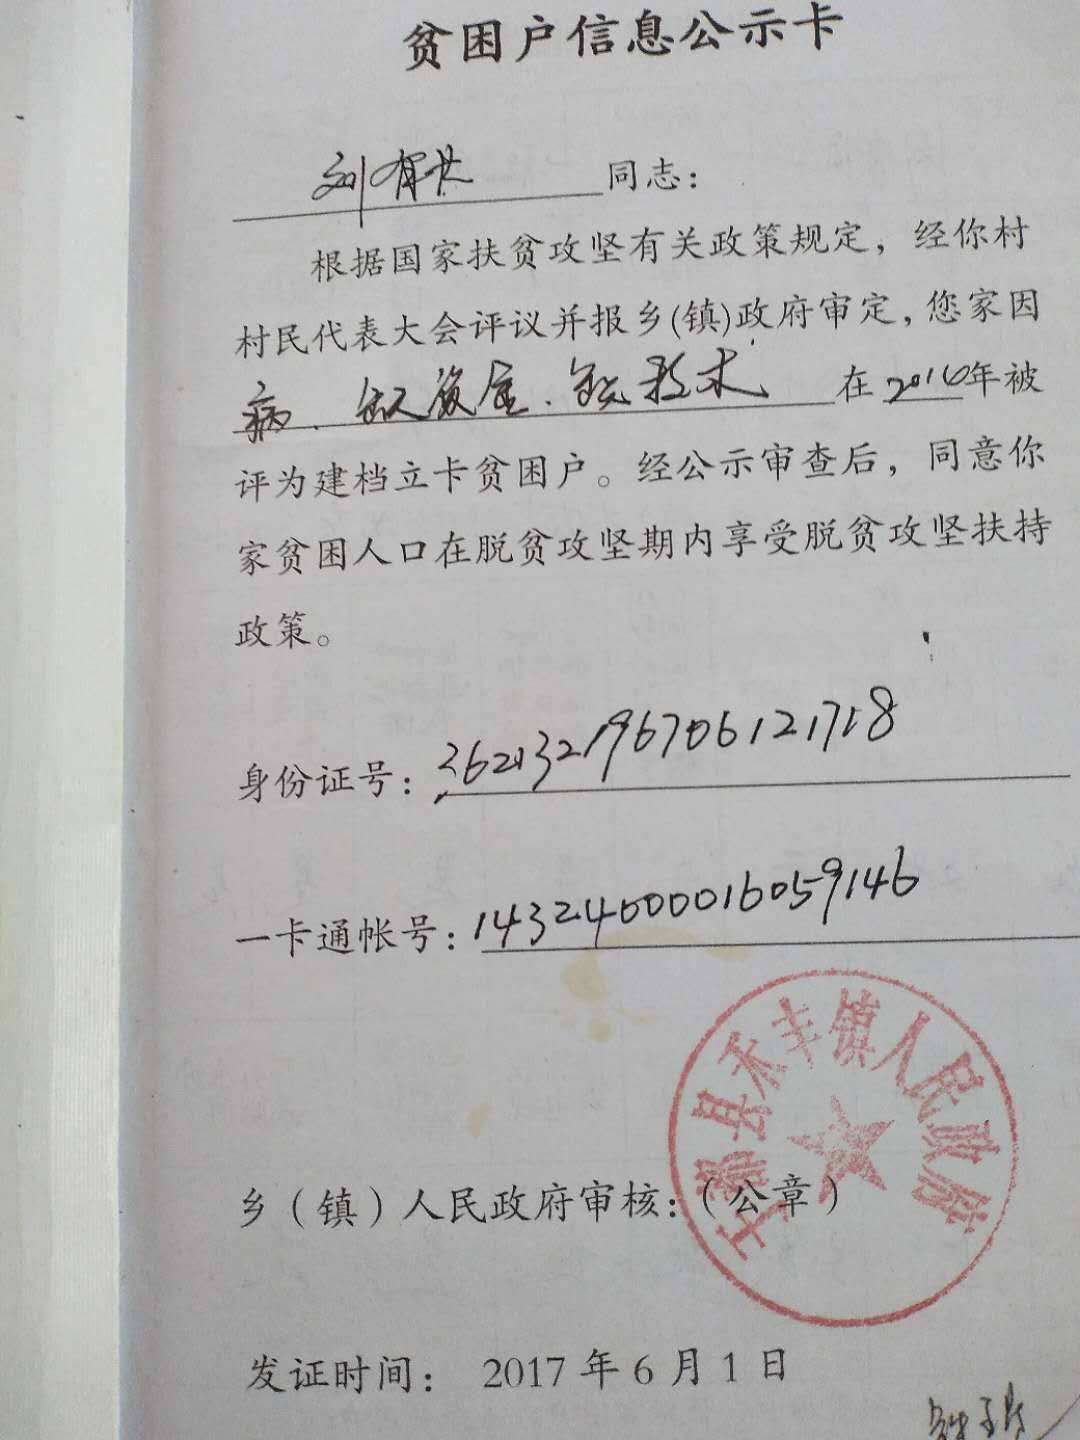 贫困户信息公示卡
刘有共同志：
根据国家扶贫攻坚有关政策规定，经你村
村民代表大会评议并报乡(镇)政府审定，您家因
病、缺资金、缺技术在2016年被
评为建档立卡贫困户。经公示审查后，同意你
家贫困人口在脱贫攻坚期内享受脱贫攻坚扶持
政策。
身份证号：362132196706121718
一卡通帐号：143240000016059146
于都县禾丰镇人民政府
乡（镇）人民政府审核：（公章）
发证时间： 2017年6月1日